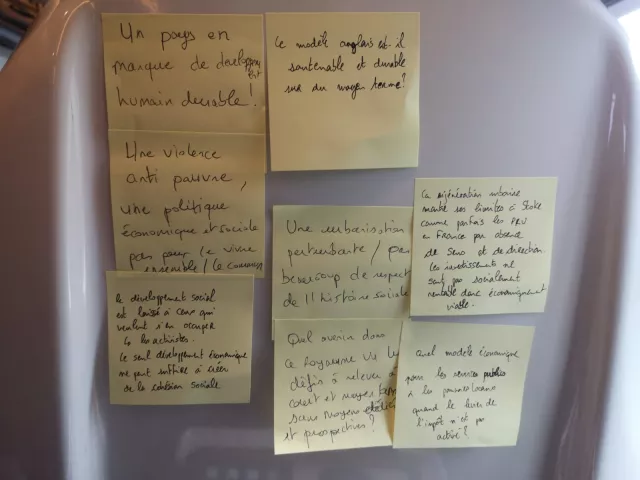 Un pays en
manque de développement
humain durable !
Le modèle anglais est-il
soutenable et durable
sur du moyen terme ?
Une violence
anti pauvre,
une politique
économique et sociale
pas pour le vivre
ensemble / le commun
Une urbanisation
perturbante / pas
beaucoup de respect
de l'histoire sociale
La régénération urbaine
montre ses limites à Stoke
comme parfois les PRU
en France par absence
de sens et de direction.
Les investissements ne
sont pas socialement
rentable donc économiquement
viable.
Le développement social
est laissé à ceux qui
veulent s'en occuper
les activistes.
Le seul développement économique
ne peut suffire à créer
de la cohésion sociale.
Quel avenir dans
ce Royaume vu les
défis à relever à
court et moyen terme
sans moyens
et prospectives ?
Quel modèle économique
pour les services publics
& les pouvoirs locaux
quand le levier de
l'impôt n'est pas
activé ?